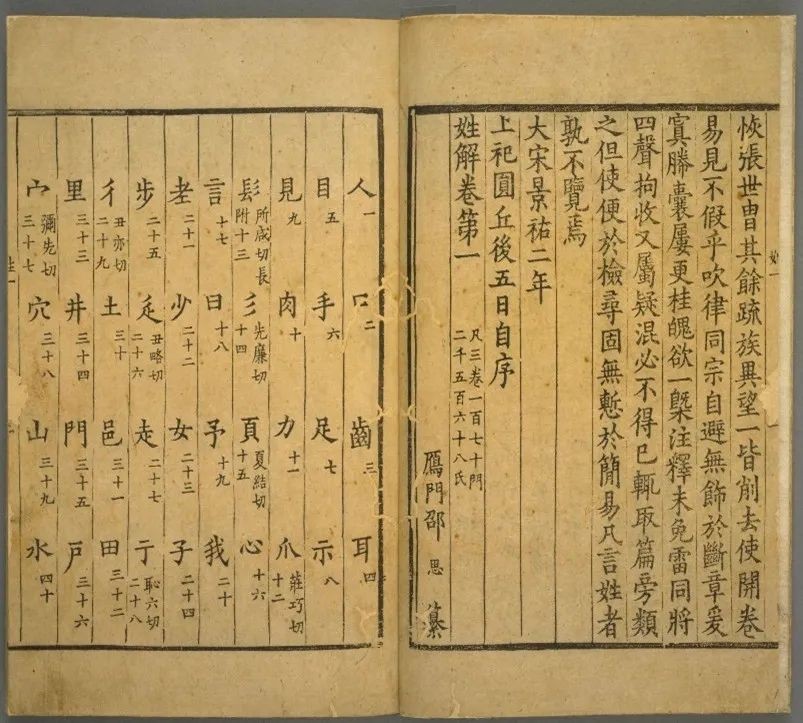 恢張世冑其餘疏族異望一皆削去使開卷
易見不假乎吹律同宗自避無飾於斷章爰
寘縢囊屢更桂魄欲一槩注釋未免雷同將
四聲拘收又屬疑混必不得已輒取篇旁類
之但使便於檢尋固無慙於簡易凡言姓者
孰不覽焉
大宋景祐二年
上祀圓丘後五日自序
姓解卷第一
凡三卷一百七十門
二千五百六十八氏
鴈門邵 思 纂
人一 口二 齒三 耳四
目五 手六 足七 示八
見九 肉十 力十一 爪莊巧切十二
髟所咸切長附十三 彡先廉切十四 頁夏結切十五 心十六
言十七 曰十八 予十九 我二十
老二十一 少二十二 女二十三 子二十四
步二十五 辵丑略切二十六 走二十七 亍恥六切二十八
彳丑亦切二十九 土三十 邑三十一 田三十二
里三十三 井三十四 門三十五 戶三十六
宀彌先切三十七 穴三十八 山三十九 水四十